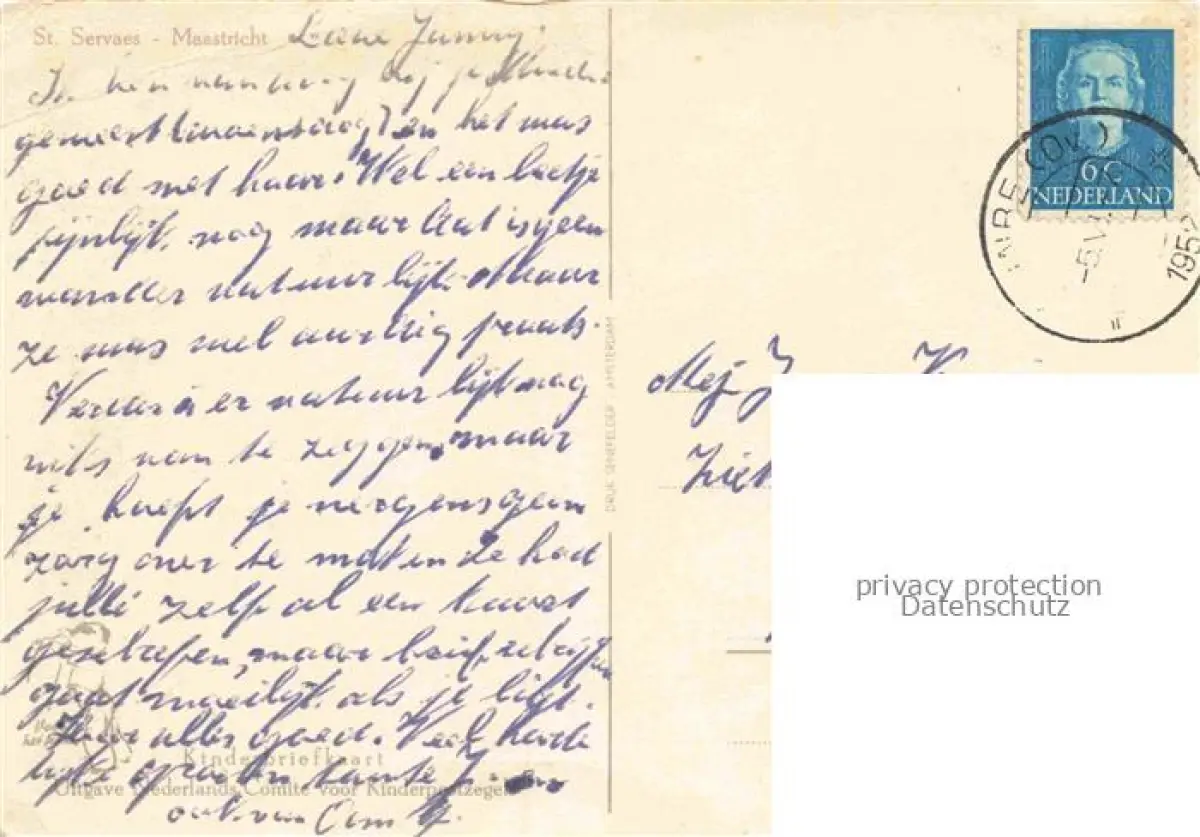 St. Servaes - Maastricht
Lieve Jenny.
Ik ben vandaag bij je
gemeest (woensdag) en het mas
goed met haar. Wel een beetje
pijnlijk nog maar dat is geen
wonder natuurlijk. Maar
ze mas mel aardig praats.
Verder is er natuurlijk nog
niks van te zeggen, maar
je hoeft je nergens geen
zorg over te maken. Ze had
jullie zelf al een kaart
geschrefen, maar brief schrijfen
gaat moeilijk als je ligt.
Hier alles goed. Veel harte
lijke groeten tante J
ook van Oom H.
Kinderbriefkaart
Uitgave Nederlands Comité voor Kinderpostzegels
DRUK SENEFELDER AMSTERDAM
6 C
NEDERLAND
(Ov.)
1952
Mej J K
Ziek
privacy protection
Datenschutz